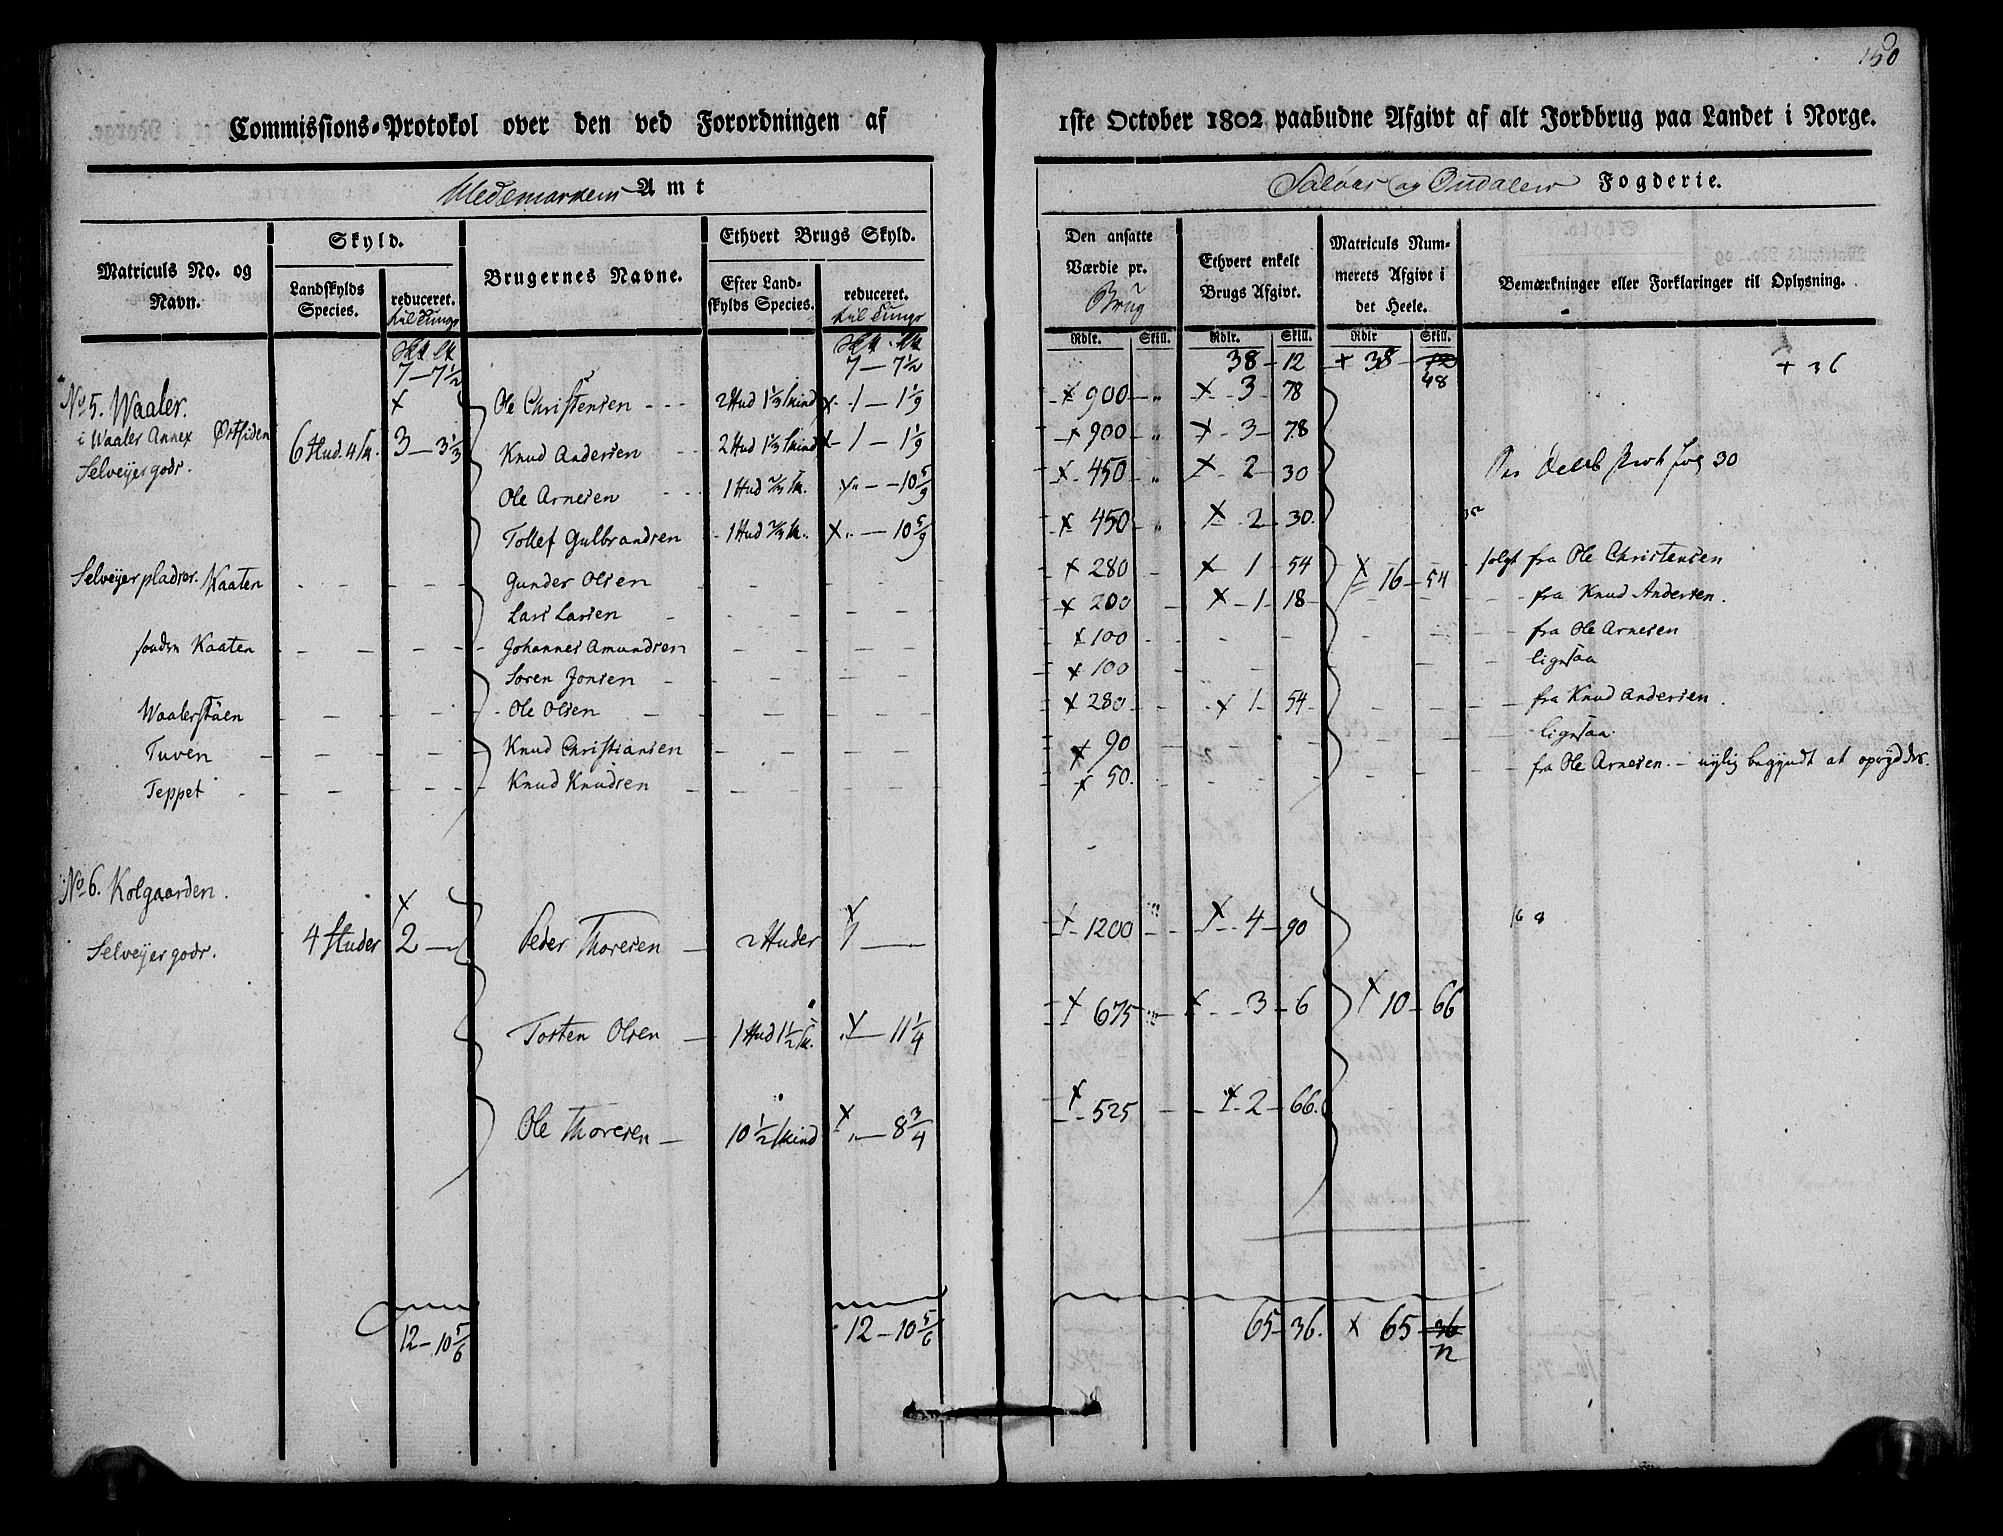 150
Commissions-Protokol over den ved Forordningen af 1ste October 1802 paabudne Afgivt af alt Jordbrug paa Landet i Norge.
Hedemarkens Amt
Soløer og Oudalens Fogderie.
Matriculs No. og Navn.
Skyld.
Landskylds Species.
reduceret. til Tunge
Brugernes Navne.
Ethvert Brugs Skyld.
Efter Landskylds Species.
reduceret. til Tunge
Den ansatte Værdie pr. Brug
Ethvert enkelt Brugs Afgivt.
Matriculs Nummerets Afgivt i det Heele.
Bemærkninger eller Forklaringer til Oplysning.
Rdlr. Skill. Rdlr. Skill. Rdlr Skill.
7 — 7 1/2 7 — 7 1/2 38 — 12 + 38 — 12 48 + 36
No 5. Waaler. x Ole Christensen - - - 2 Hud 1 1/3 skind x 1 — 1 1/9 x 900 — „ x 3 — 78
i Waaler Annex Østsiden 6 Hud. 4 sk. 3 — 3 1/3 Knud Andersen - - 2 Hud 1 1/3 skind x 1 — 1 1/9 x 900 — „ x 3 — 78
Selveyergods. Ole Arnesen - - - 1 Hud 2/3 sk. x „ — 10 5/9 x 450 — „ x 2 — 30 fol 30
Tollef Gulbrandsen 1 Hud 2/3 sk. x „ — 10 5/9 x 450 — „ x 2 — 30.
Selveyerpladser. Kaaten Gunder Olsen x 280 x 1 — 54 x 16 — 54 solgt fra Ole Christensen
Lars Larsen x 200 x 1 — 18 fra Knud Andersen.
søndre Kaaten Johannes Amundsen x 100 fra Ole Arnesen
Søren Jonsen x 100 ligesaa
Waalerstuen Ole Olsen x 280 x 1 — 54 fra Knud Andersen.
Tuven Knud Christiansen x 90 ligesaa.
Teppet Knud Knudsen x 50. fra Ole Arnesen. — nylig begyndt at opryddes.
No 6. Kolgaarden.
Selveyergods. 4 Huder x 2 — Peder Thoresen — 2 Huder x 1 — x 1200 x 4 — 90 16 8
Torsten Olsen — 1 Hud 1 1/2 sk. x — 11 1/4 x 675 x 3 — 6 x 10 — 66
Ole Thoresen — 10 1/2 skind x „ — 8 3/4 x 525 x 2 — 66.
12 — 10 5/6 12 — 10 5/6 65 — 36. x 65 — 36 72